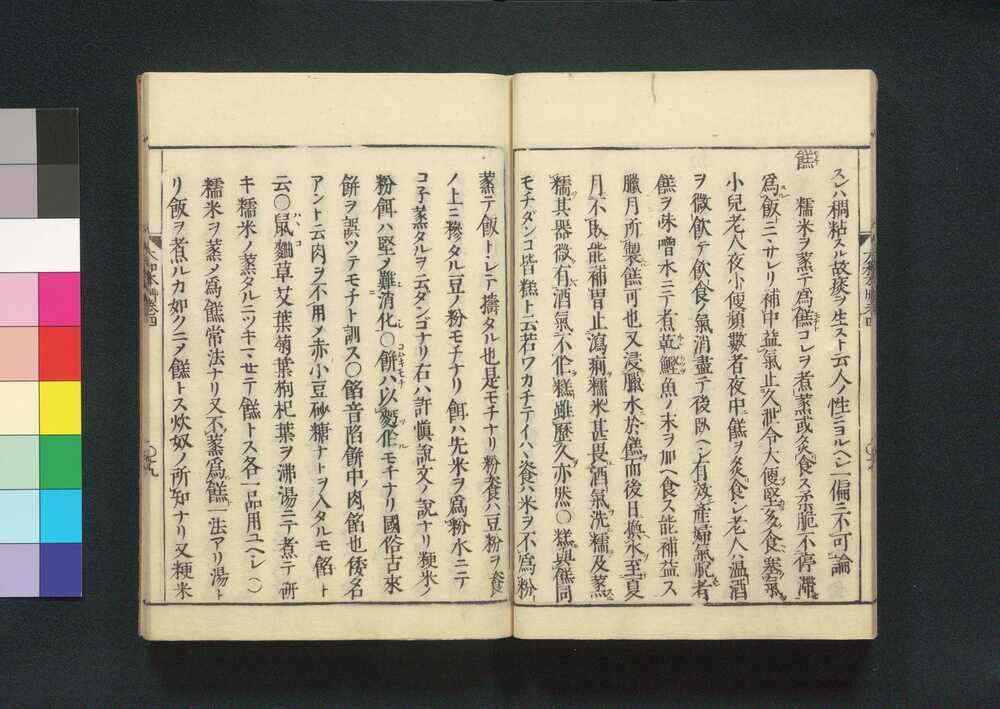 スレハ稠粘スル故痰ヲ生スト云人ノ性ニヨルヘシ一偏ニ不可論
餻
糯米ヲ蒸テ為餻コレヲ煮蒸或炙食ス柔脆不停滯
為飯ニマサレリ補中益氣止久泄令大便堅多食塞氣
小兒老人夜小便頻數者夜中餻ヲ炙食シ老人ハ温酒
ヲ微飲テ飲食ノ氣消盡テ後臥ヘシ有效產婦氣脫者
餻ヲ味噌水ニテ煮乾鰹魚ノ末ヲ加ヘ食ス能補益ス
臘月所製餻可也又浸臘水於餻而後日換水至夏
月不敗能補胃止瀉痢糯米甚畏酒氣洗糯及蒸
糯其器微有酒氣不作糕雖歷久亦然〇糕與餻同
モチダンコ皆糕ト云若ワカチテイハヽ餈ハ米ヲ不為粉
蒸テ飯トシテ擣タル也是モチナリ粉餈ハ豆粉ヲ餈
ノ上ニ糝タル豆ノ粉モチナリ餌ハ先米ヲ為粉水ニテ
コ子蒸タルヲ云ダンゴナリ右ハ許慎說文ノ說ナリ粳米ノ
粉餌ハ堅メ難消化〇餅ハ以麪作モチナリ國俗古來
餅ヲ誤ツテモチト訓ス〇餡音陷餅中ノ肉餡也倭名
アント云肉ヲ不用メ赤小豆砂糖ナトヲ入タルモ餡ト
云〇鼠麹草艾葉菊葉枸杞葉ヲ沸湯ニテ煮テ研
キ糯米ノ蒸タルニツキマセテ餻トス各一品用ユヘシ〇
糯米ヲ蒸メ為餻常法ナリ又不蒸為餻一法アリ湯ト
リ飯ヲ煮ルカ如クニメ餻トス炊奴ノ所知ナリ又粳米